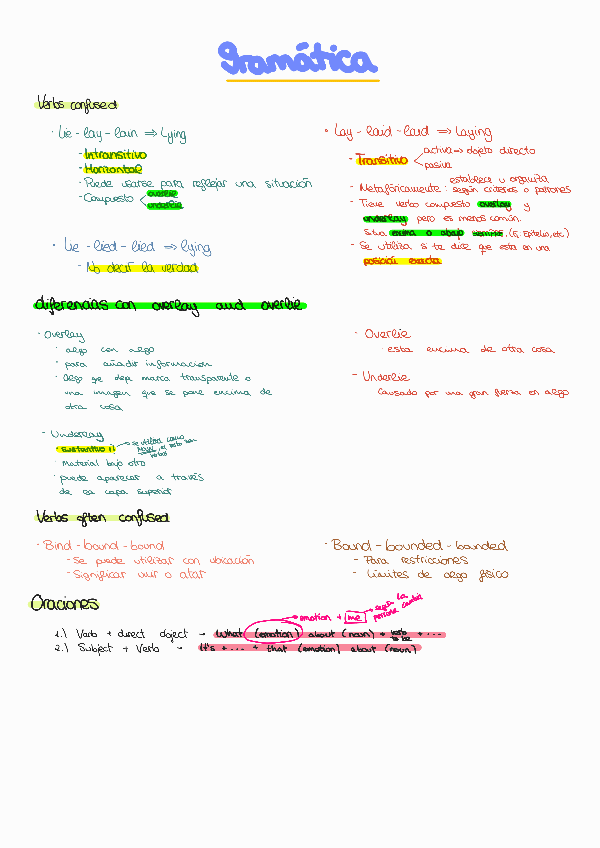 Gramática
Verbs confused
· Lie - lay - lain ⇒ Lying
- Intransitivo
- Horizontal
- Puede usarse para reflejar una situación
- Compuesto < overlie
underlie
· Lie - lied - lied ⇒ lying
- No decir la verdad
· Lay - laid - laid ⇒ Laying
- Transitivo < activa → objeto directo
pasiva
establecer u organizar
- Metafóricamente: según criterios o patrones
- Tiene verbo compuesto overlay y
underlay pero es menos común.
Situa encima o abajo siempre. (Ej. Epitelio, etc)
- Se utiliza si te dice que está en una
posición exacta
diferencias con overlay and overlie
· Overlay
· algo con algo
· para añadir información
· Algo que deja marca transparente o
una imagen que se pone encima de
otra cosa
- Underlay
· sustantivo i! → se utiliza como
· Material bajo otro
· puede aparecer a través
de la capa superior
· Overlie
· esta encima de otra cosa
- Underlie
Causado por una gran fuerza en algo
Verbs often confused
· Bind - bound - bound
- Se puede utilizar con ubicación
- Significar unir o atar
· Bound - bounded - bounded
- Para restricciones
- Límites de algo físico
Oraciones
emotion + me → según la
persona cambia
1.) Verb + direct object → What (emotion) about (noun) + verb to be + ...
2.) Subject + Verb → It's + ... + that (emotion) about (noun)